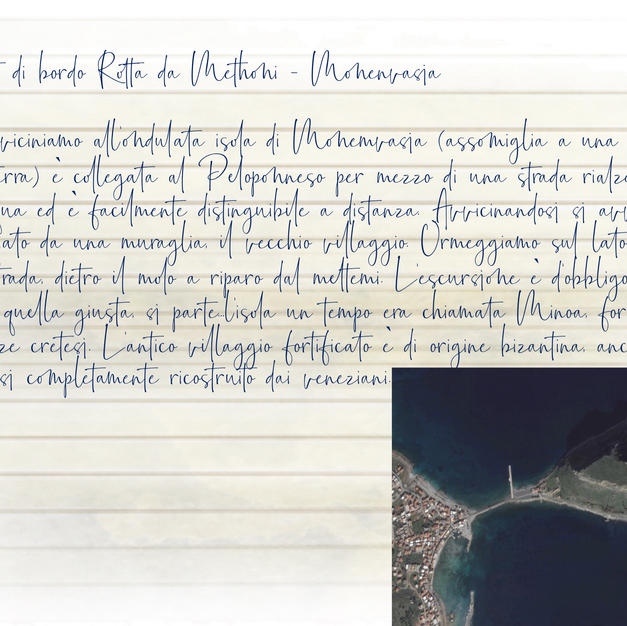 di bordo Rotta da Methoni - Monenvasia
viciniamo all'ondulata isola di Monemvasia (assomiglia a una
erra) è collegata al Peloponneso per mezzo di una strada rialz
ua ed è facilmente distinguibile a distanza. Avvicinandosi si av
ato da una muraglia, il vecchio villaggio. Ormeggiamo sul lato
rada, dietro il molo a riparo dal meltemi. L'escursione è d'obbligo
quella giusta, si parte..l'isola un tempo era chiamata Minoa, for
ze cretesi. L'antico villaggio fortificato è di origine bizantina, anc
si completamente ricostruito dai veneziani.